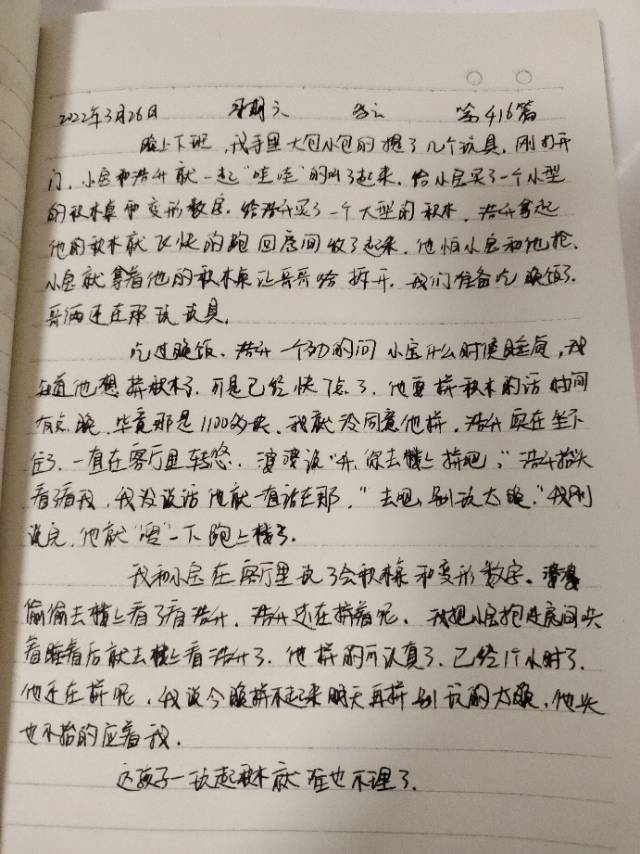 2022年3月26日 星期六 多云 第416篇
晚上下班,我手里大包小包的提了几个玩具,刚打开
门,小宝和浩升就一起“哇哇”的叫了起来,给小宝买了一个小型
的积木桌和变形数字,给浩升买了一个大型的积木,浩升拿起
他的积木就飞快的跑回房间收了起来,他怕小宝和他抢,
小宝就拿着他的积木桌让哥哥给拆开,我们准备吃晚饭了,
哥俩还在那玩玩具。
吃过晚饭,浩升一个劲的问小宝什么时候睡觉,我
知道他想拼积木了,可是已经快点了,他要拼积木的话时间
有点晚,毕竟那是1100多块,我就没同意他拼,浩升实在坐不
住了,一直在客厅里转悠,婆婆说“升,你去楼上拼吧,”浩升抬头
看了看我,我没说话他就一直站在那,“去吧,别玩太晚,”我刚
说完,他就“嗖”一下跑上楼了。
我和小宝在客厅里玩了会积木桌和变形数字。婆婆
偷偷去楼上看了看浩升,浩升还在拼着呢,我把小宝抱进房间哄
着睡着后就去楼上看浩升了,他拼的可认真了,已经1个小时了,
他还在拼呢,我说今晚拼不起来明天再拼别玩的太晚,他头
也不抬的应着我。
这孩子一玩起积木就谁也不理了。